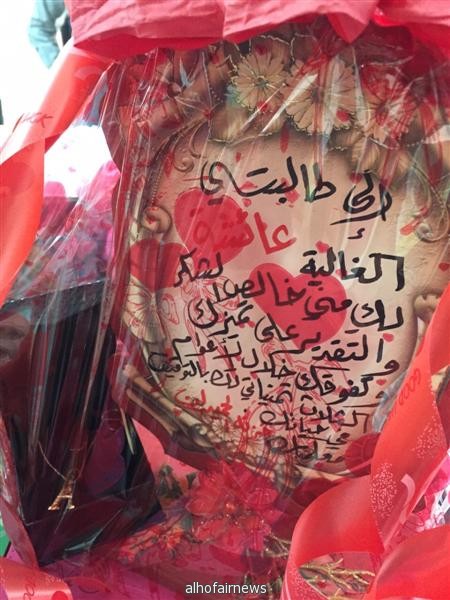 إلى طالبتي
عائشة
الغالية
لك مني خالص الشكر
والتقدير على تميزك
وتفوقك خلال
تمنياتي لك بالتوفيق
في حياتك
alhofairnews